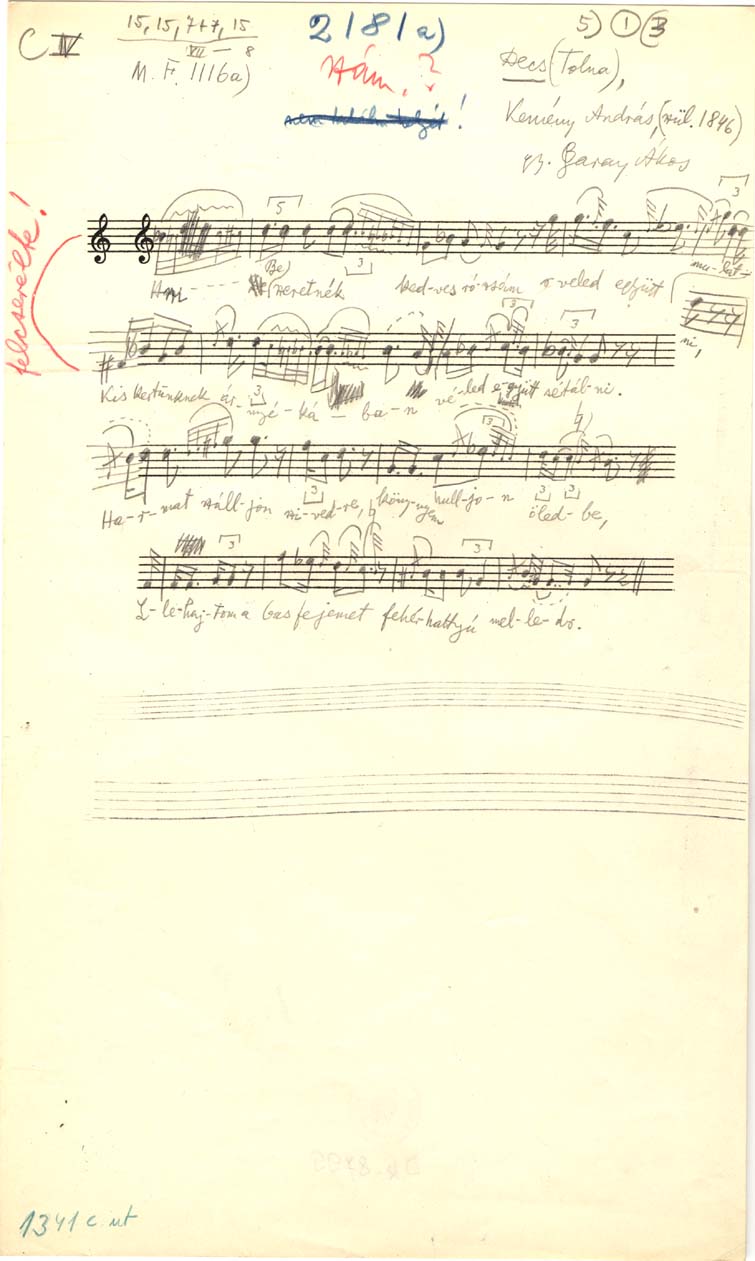 C IV
15, 15, 7+7, 15
VII — 8
M. F. 1116a)
2181a)
5) 1 3
Decs (Tolna),
Kemény András, (szül. 1846)
gy. Garay Ákos
felcserélte!
5
3
3
Be)
szeretnék ked-ves ró-zsám veled együtt mu-lat-
ni,
3
3
3
Kis kertünknek ár-nyé-ká-ba-n vé-led e-gyütt sétál-ni.
3
3
3
3
Ha-r-mat száll-jon szi-ved-re, köny-nyem hull-jo-n öled-be,
3
3
L-le-haj-tom a bas fejemet fehér hattyú mel-le-dre.
1341 c. ut